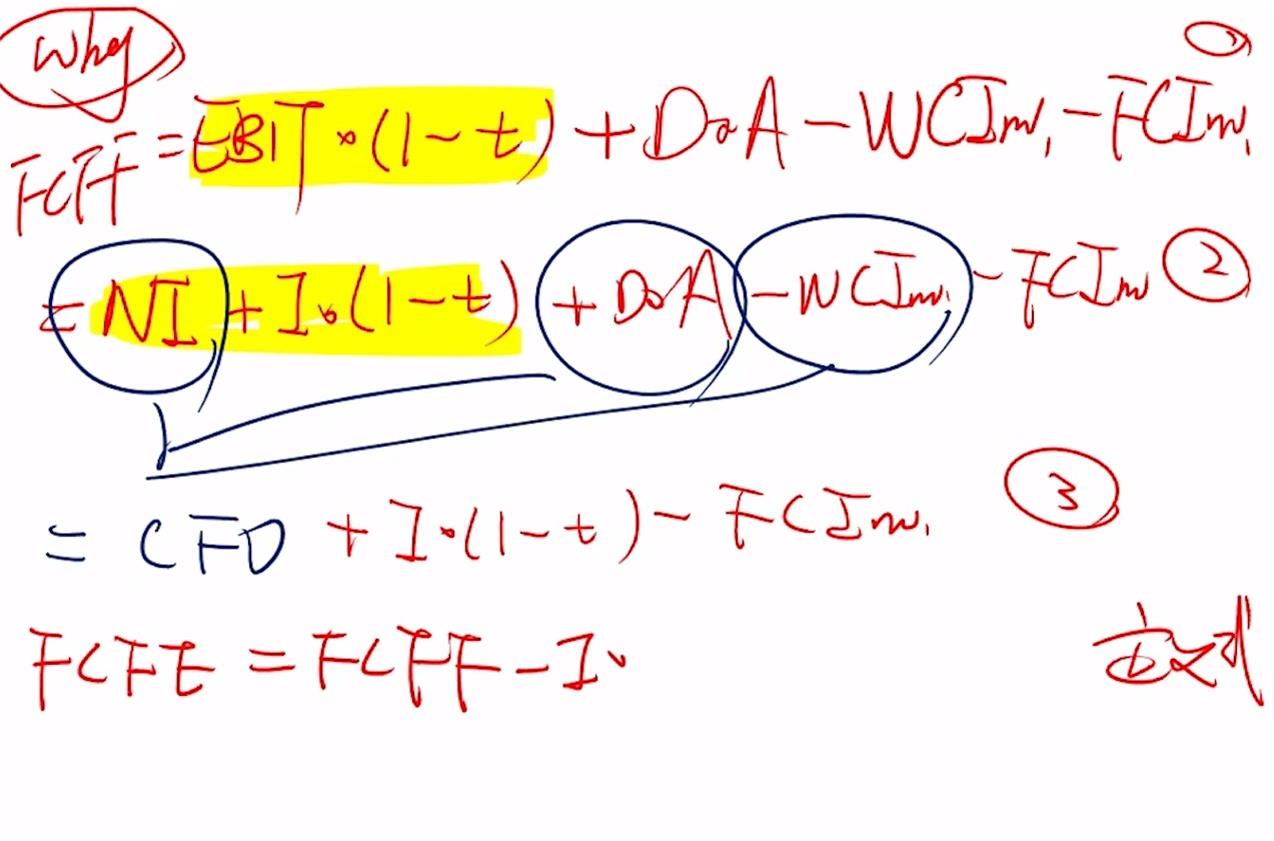 Why
①
FCFF = EBIT·(1-t) + DoA - WCInv. - FCInv.
= NI + I·(1-t) + DoA - WCInv. - FCInv ②
= CFO + I·(1-t) - FCInv. ③
FCFE = FCFF - I·